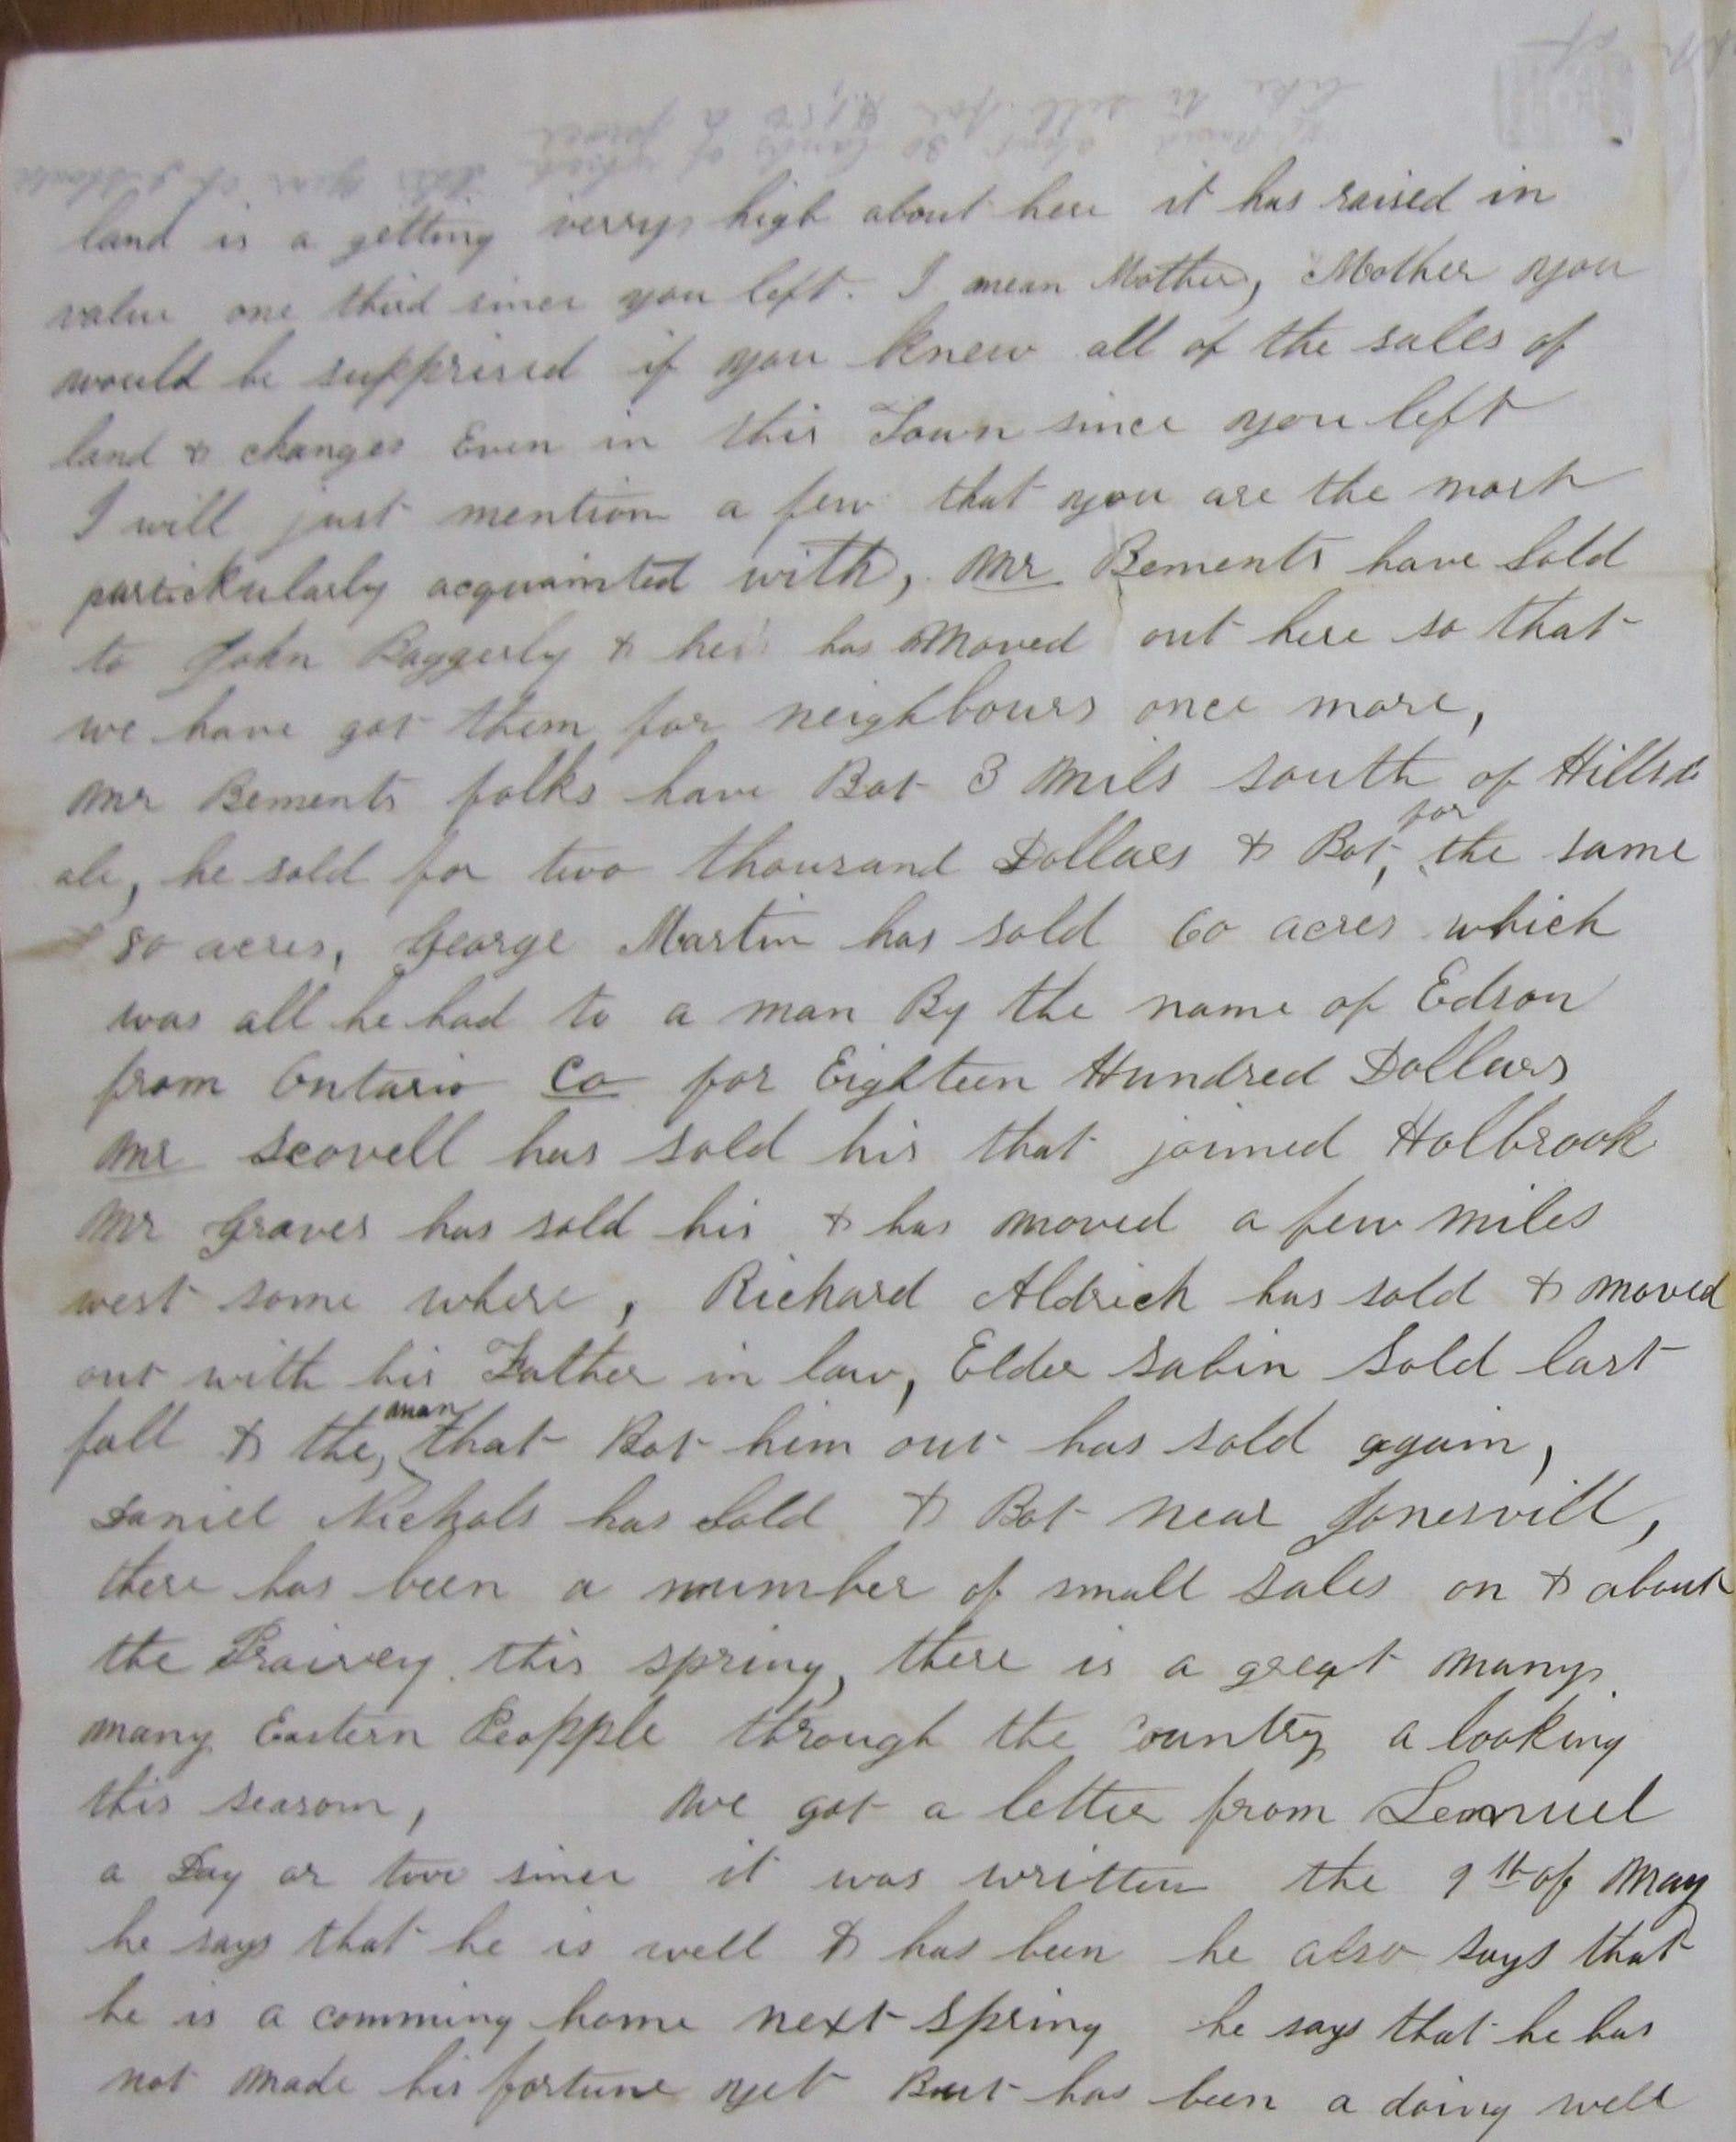 land is a getting verry high about here it has raised in
value one third since you left. I mean Mother, Mother you
would be supprised if you knew all of the sales of
land & changes Even in this Town since you left
I will just mention a few that you are the most
partickularly acquainted with, Mr Bements have Sold
to John Baggerly & he has Moved out here so that
we have got them for neighbours once more,
Mr Bements folks have Bot 3 Mils south of Hillsd
ale, he sold for two thousand Dollars & Bot, for the same
80 acres, George Martin has sold 60 acres which
was all he had to a man By the name of Edson
from Ontario Co for Eighteen Hundred Dollars
Mr Scovell has sold his that joined Holbrook
Mr Graves has sold his & has moved a few miles
west some where, Richard Aldrich has sold & moved
out with his Father in law, Elder Sabin Sold last
fall & the, man that Bot him out has sold again,
Daniel Nichols has Sold & Bot near Jonesvill,
there has been a number of small Sales on & about
the Prairey this spring, there is a great many
many Eastern Peopple through the Country a looking
this season, We got a letter from Lemuel
a Day or two since it was written the 9th of May
he says that he is well & has been he also says that
he is a comming home next spring he says that he has
not made his fortune yet But has been a doing well